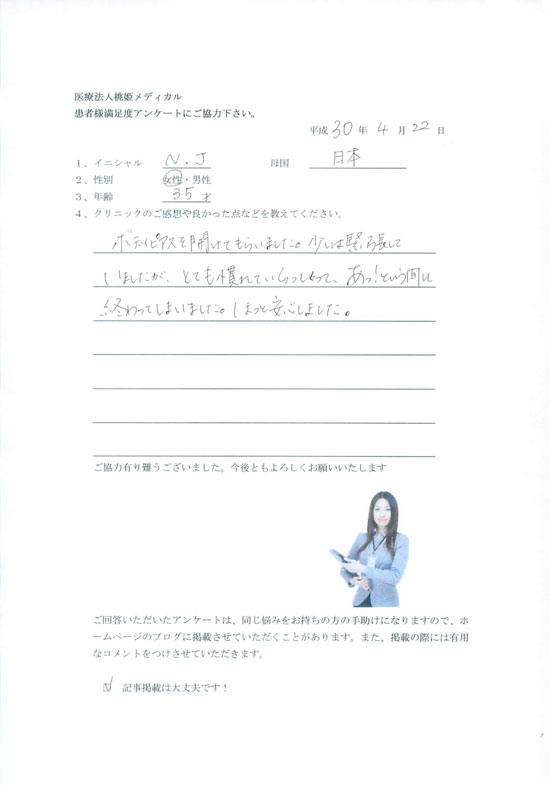 医療法人桃姫メディカル
患者様満足度アンケートにご協力下さい。
平成 30 年 4 月 22 日
1、イニシャル N.J 母国 日本
2、性別 女性・男性
3、年齢 35 才
4、クリニックのご感想や良かった点などを教えてください。
ボディピアスを開けてもらいました。少しは緊張して
いましたが、とても慣れていらっしゃって、あっ!という間に
終わってしまいました。ほっと安心しました。
ご協力有り難うございました。今後ともよろしくお願いいたします
ご回答いただいたアンケートは、同じ悩みをお持ちの方の手助けになりますので、ホ
ームページのブログに掲載させていただくことがあります。また、掲載の際には有用
なコメントをつけさせていただきます。
☑ 記事掲載は大丈夫です!